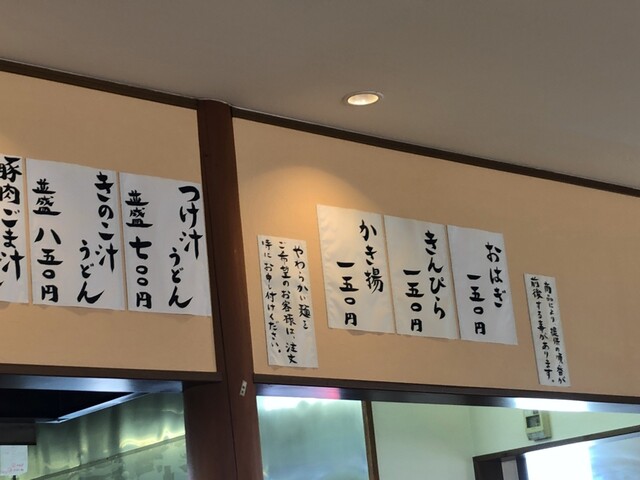 つけ汁
うどん
並盛 七〇〇円
きのこ汁
うどん
並盛 八五〇円
豚肉ごま汁
おはぎ
一五〇円
きんぴら
一五〇円
かき揚
一五〇円
やわらかい麺を
ご希望のお客様は、注文
時にお申し付けください。
商品により提供の順番が
前後する事があります。